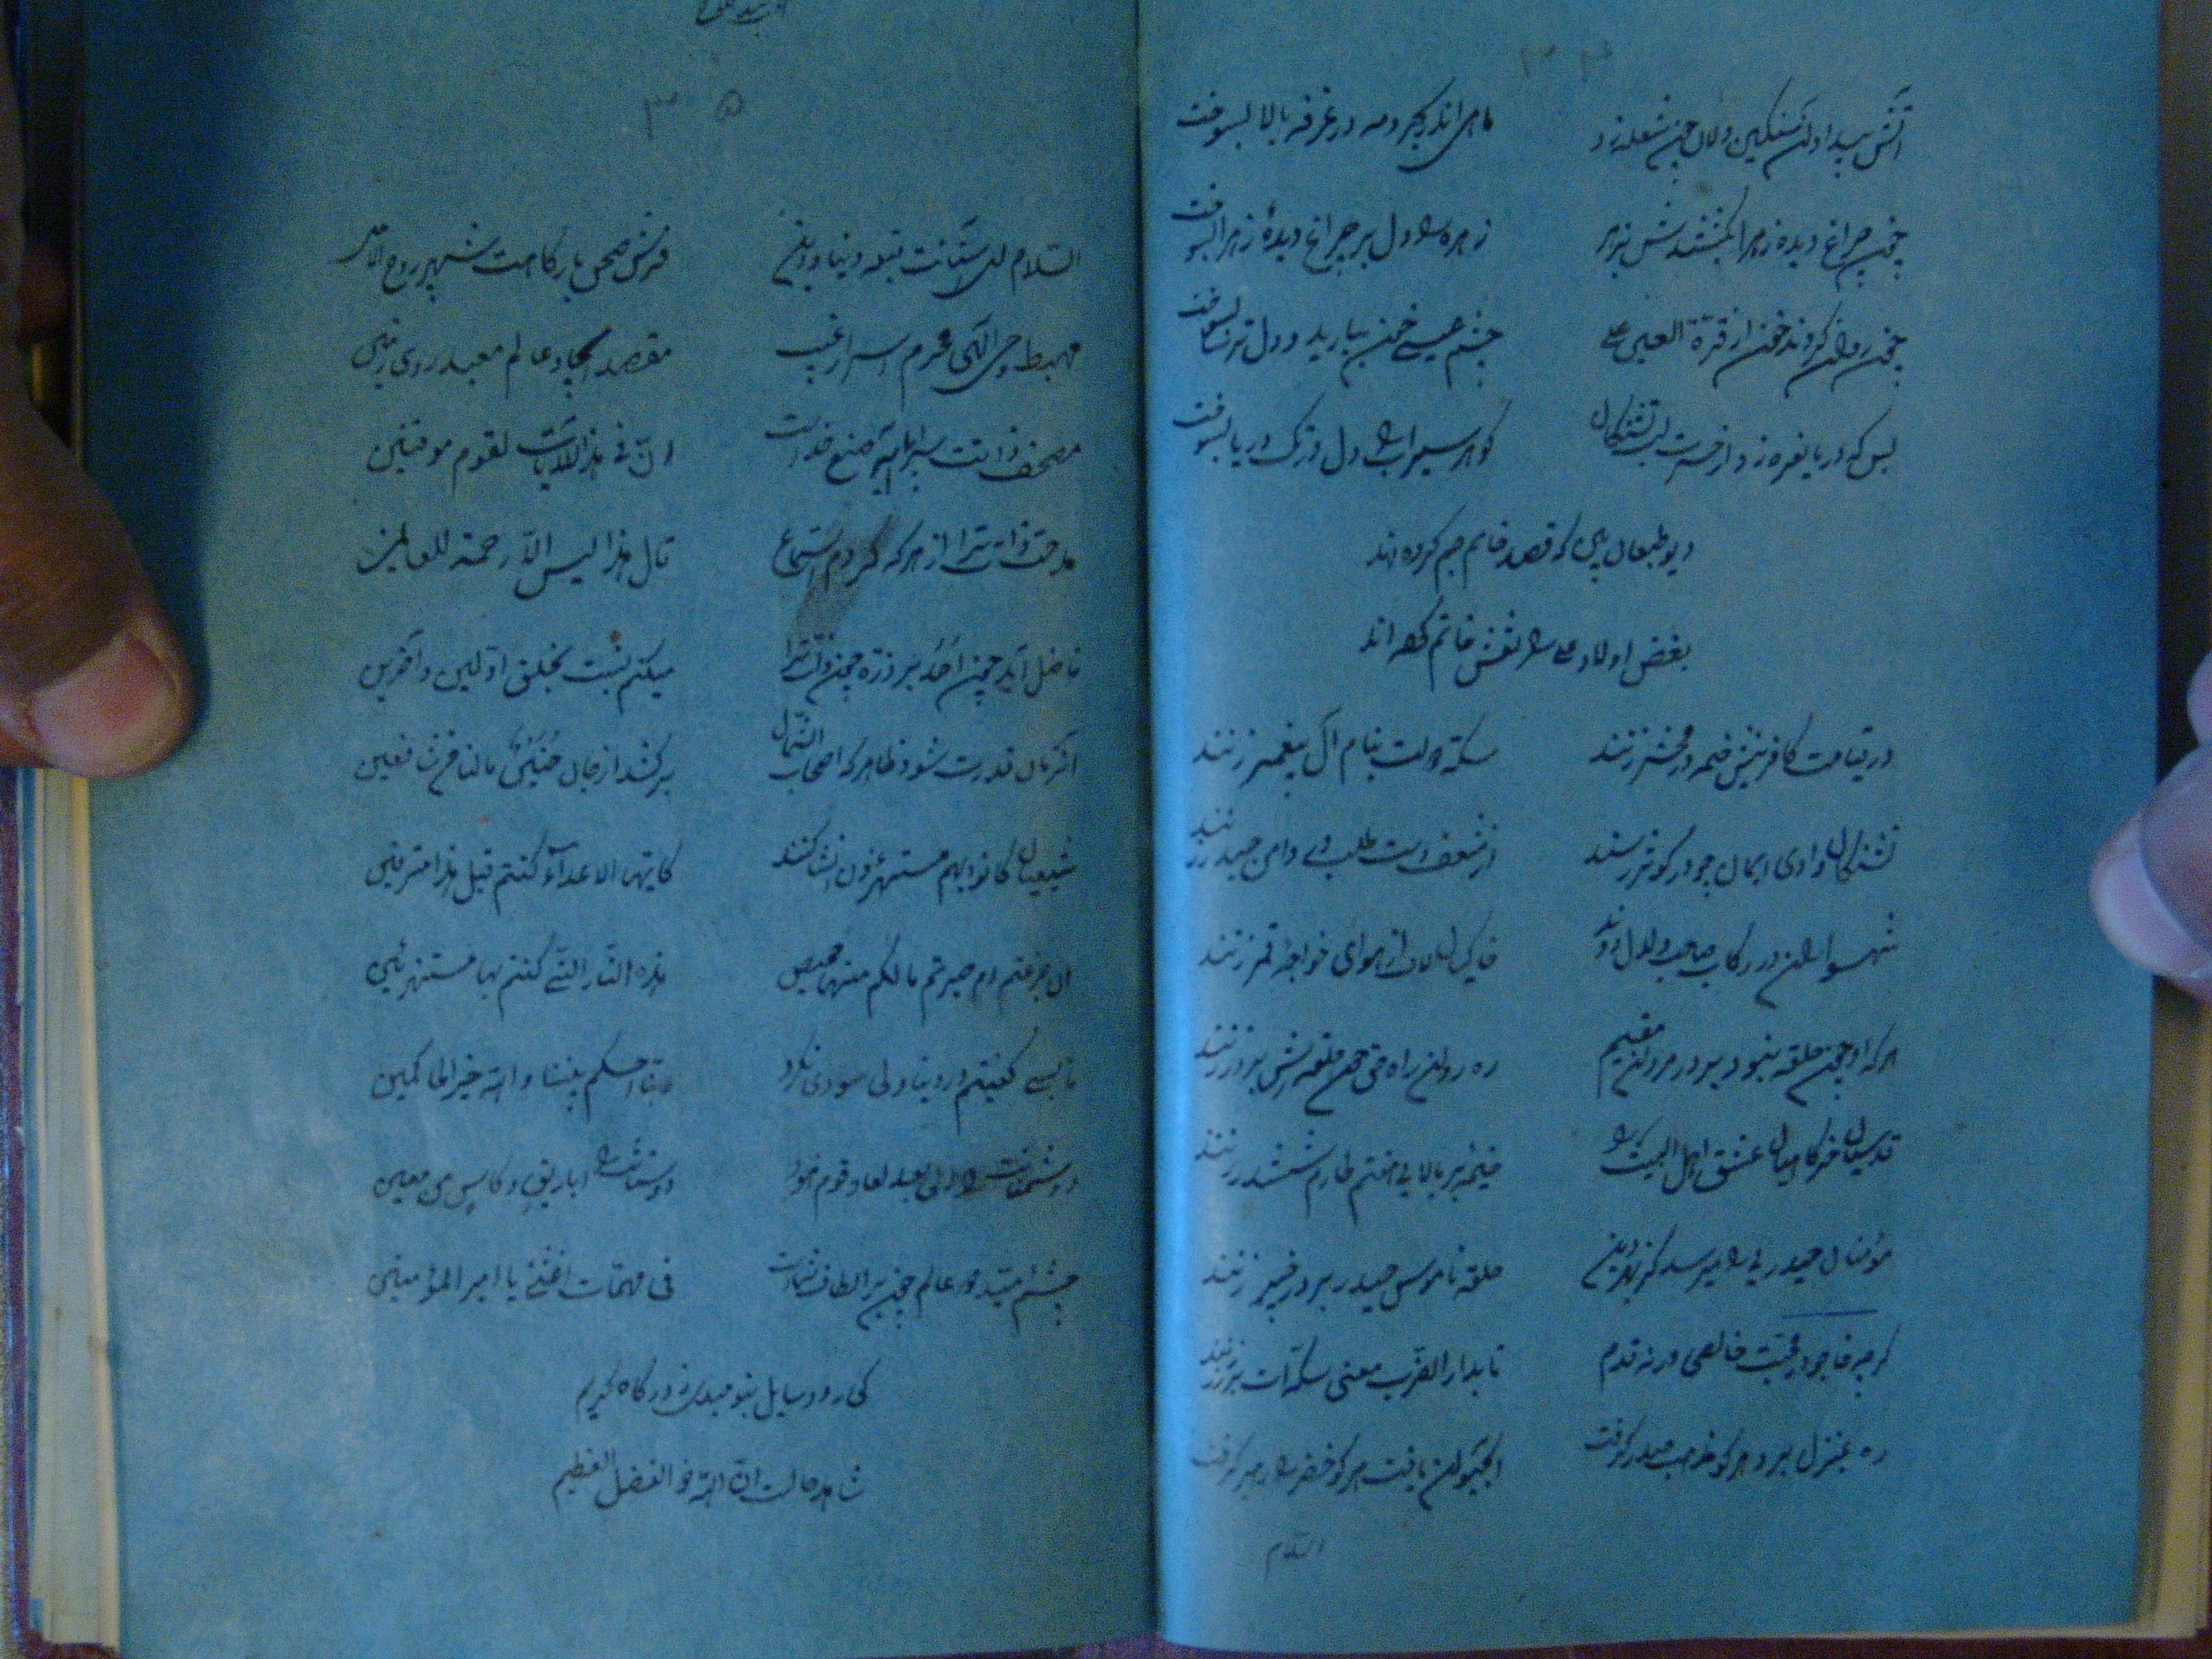 ۳۴
آتش بیداد آن سنگین دلان چون شعله زد ماهی اندر بحر و مه در غرفه بالا بسوخت
چون چراغ دیده زهرا بکشتندش بزهر زهره را دل بر چراغ دیدهٔ زهرا بسوخت
چون روان کردند خون از قرة العین علی چشم عیسی خون ببارید و دل ترسا بسوخت
بس که دریا نعره زد از حسرت لب تشنگان گوهر سیراب را دل در دریا بسوخت
دیو طبعان بین که قصد خاتم جم کرده اند
بغض اولاد علی را نقش خاتم کرده اند
در قیامت کافرینش خیمه در محشر زنند سکه دولت بنام آل پیغمبر زنند
تشنگان وادی ایمان چو در کوثر رسند از شعف دست طلب در دامن حیدر زنند
شهسواران در رکاب صاحب دلدل روند خاکیان از هوای خواجه قنبر زنند
هر که او چون حلقه نبود بر در مردان مقیم ره روان راه حق چون حلقه اش بر در زنند
قدسیان عشق اهل البیت را خیمه بر بالای هفتم طارم ششدر زنند
مؤمنان حیدری را میرسد کز بهر دین حلقه ناموس حیدر بر در خیبر زنند
گر چو خاجو در محبت خالصی درنه قدم تا بدار الضرب معنی سکه ات بر زر زنند
ره بمنزل برد هر کو مذهب حیدر گرفت آب حیوان یافت هر کو خضر را رهبر گرفت
السلام
۳۵
السلام ای آستانت قبله دنیا و دین فرش صحن بارگاهت شهپر روح الامین
مهبط وحی الهی محرم اسرار غیب مقصد ایجاد عالم معبد روی زمین
مصحف ذاتت سراپا آیه صنع خداست ان فی هذا لآیات لقوم موقنین
مدحت ذات ترا از هر که کردم استماع قال هذا لیس الا رحمة للعالمین
فاضل آید چون احد بر ذره چون ذات ترا میکنم نسبت بخلق اولین و آخرین
آنزمان قدرت شود ظاهر که اصحاب الشمال برکشند از جان حنین مالنا من شافعین
شیعیان کانوا بهم مستهزءون انشا کنند کایها الاعدآء کنتم قبل هذا مترفین
ان جزعتم ام صبرتم مالکم منها محیص هذه النار التی کنتم بها مستهزئین
ما بسی گفتیم در دنیا ولی سودی نکرد ربنا احکم بیننا والله خیر الحاکمین
دشمنانت را الا بعدا لعاد قوم هود دوستانت را اباریق و کاس من معین
چشم امید همه عالم چون بر الطاف شماست فی مهمات اغثنی یا امیر المؤمنین
کی رود سایل بنومیدی ز درگاه کریم
شاهد حالست ان الله ذو الفضل العظیم